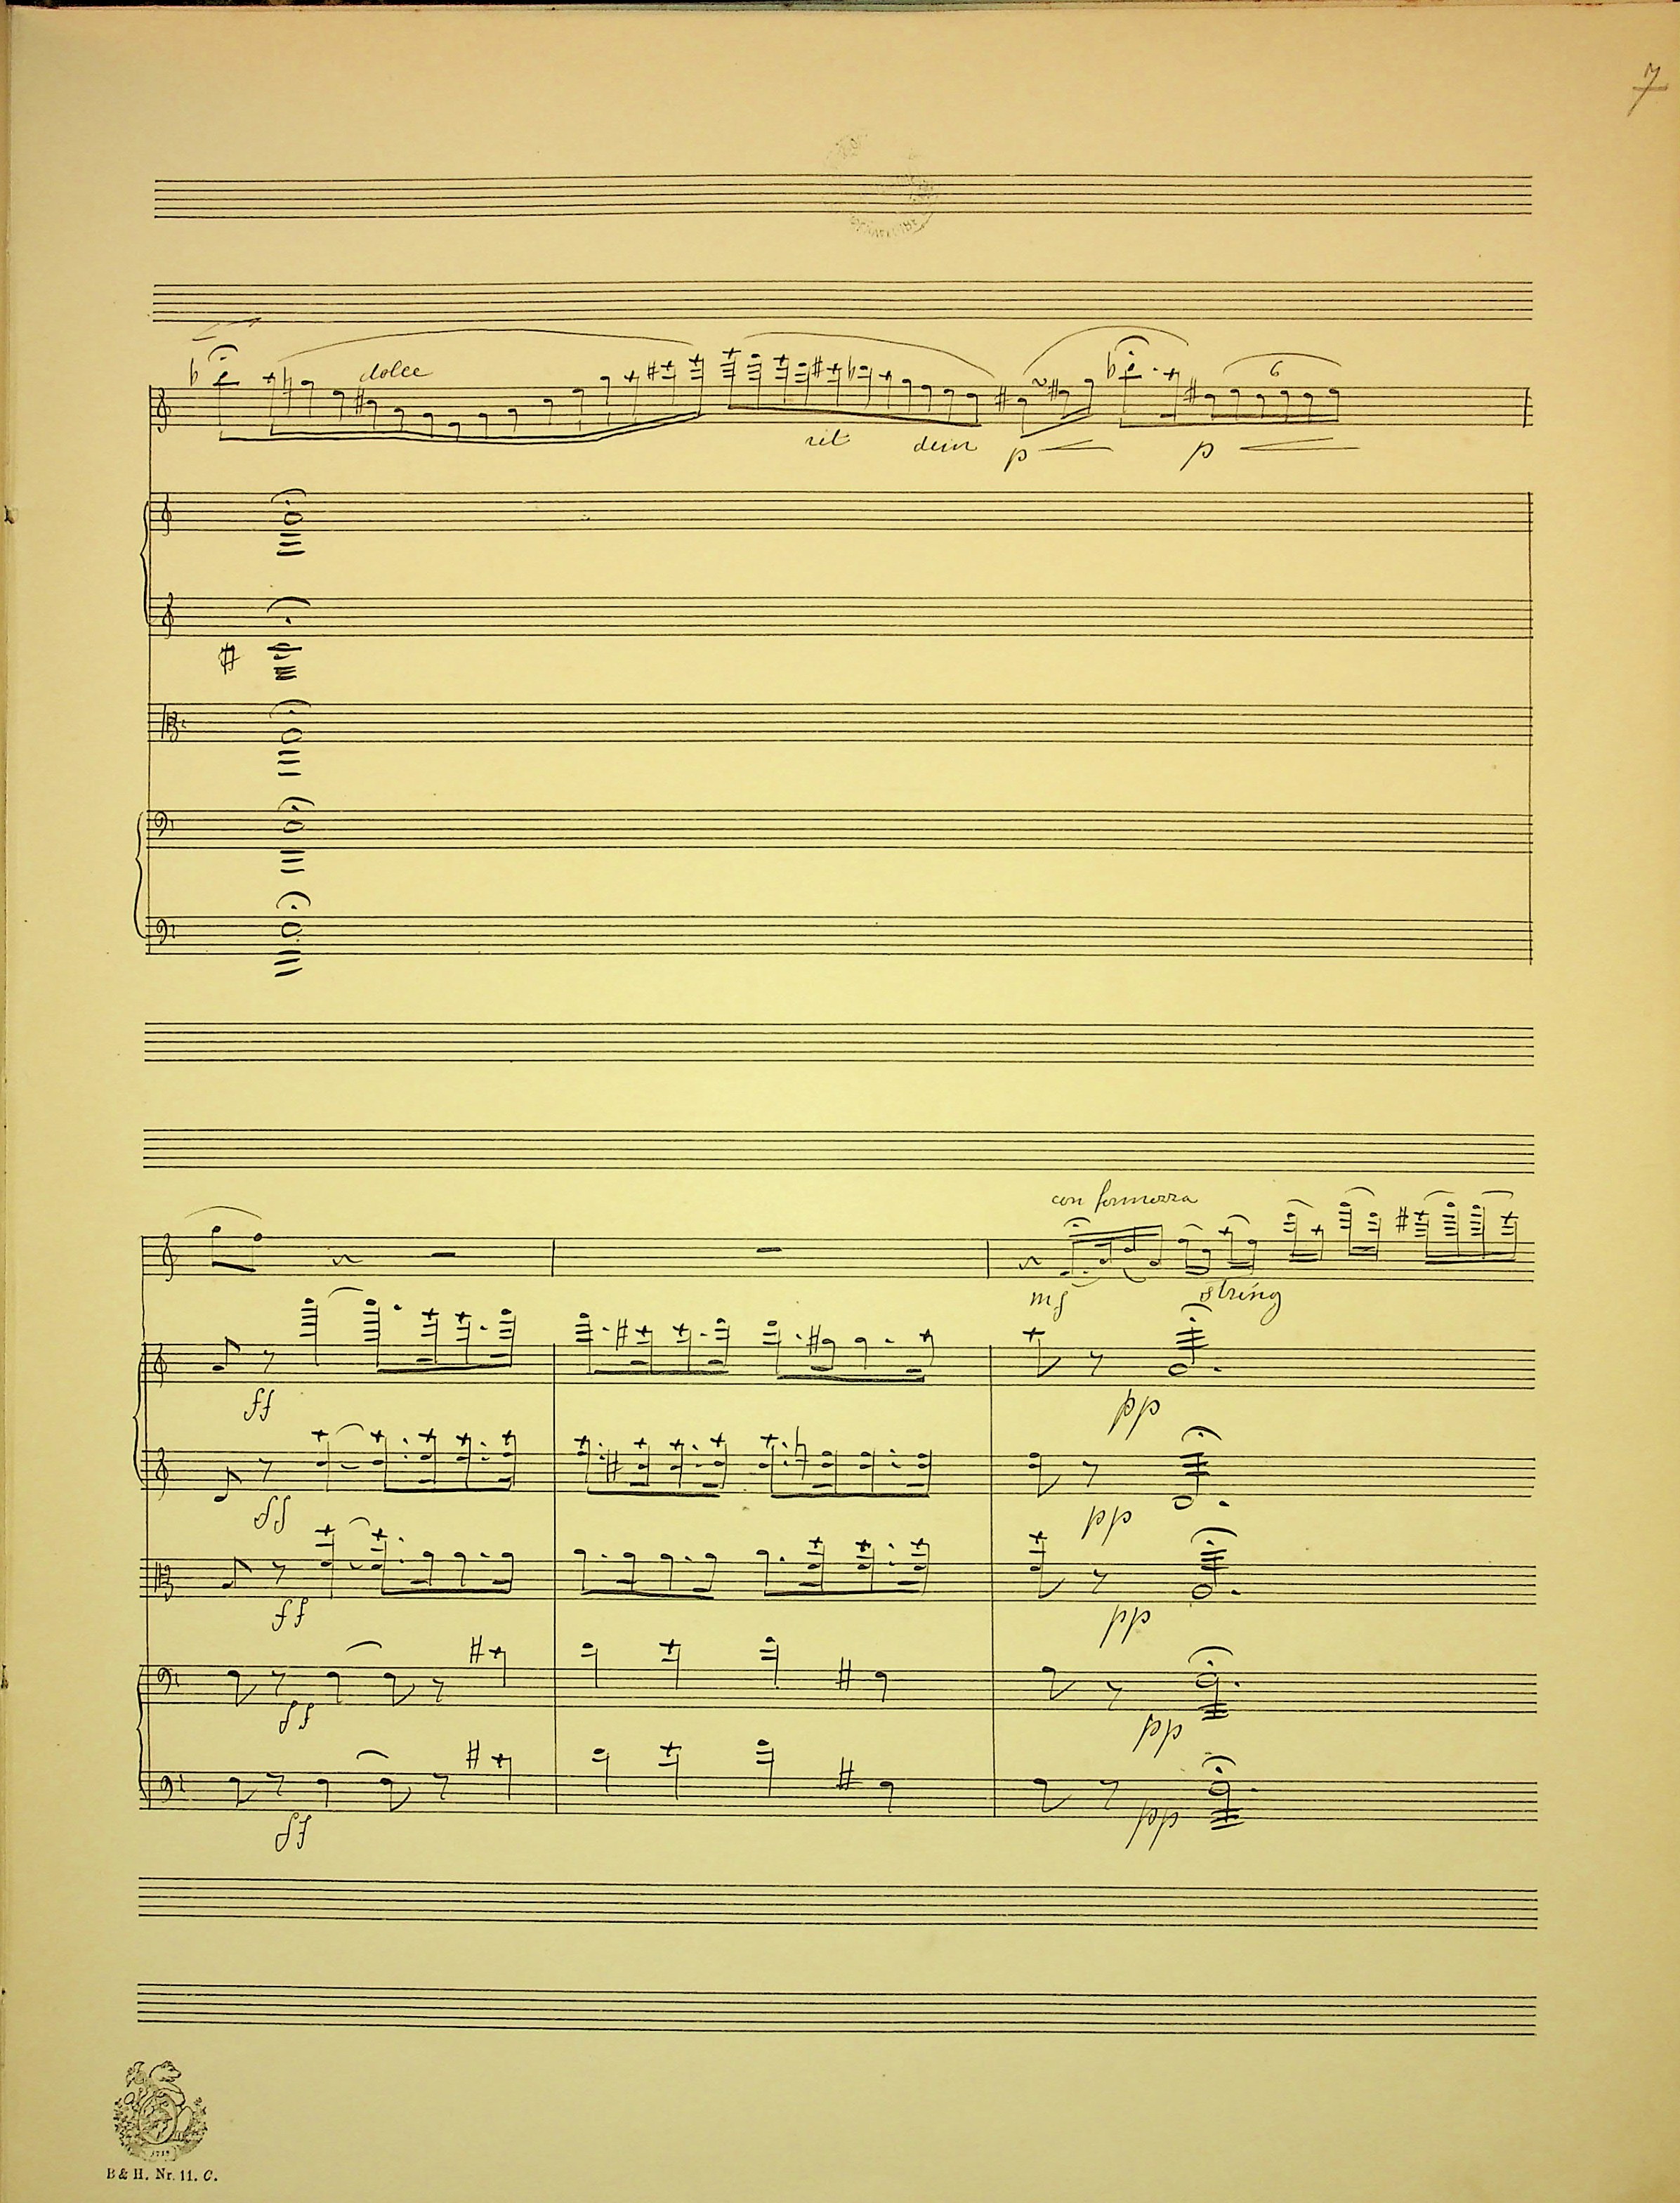 7
dolce
6
rit dim p p
con fermezza
mf string
ff pp
ff pp
ff pp
ff pp
ff pp
1719
B & H. Nr. 11. C.